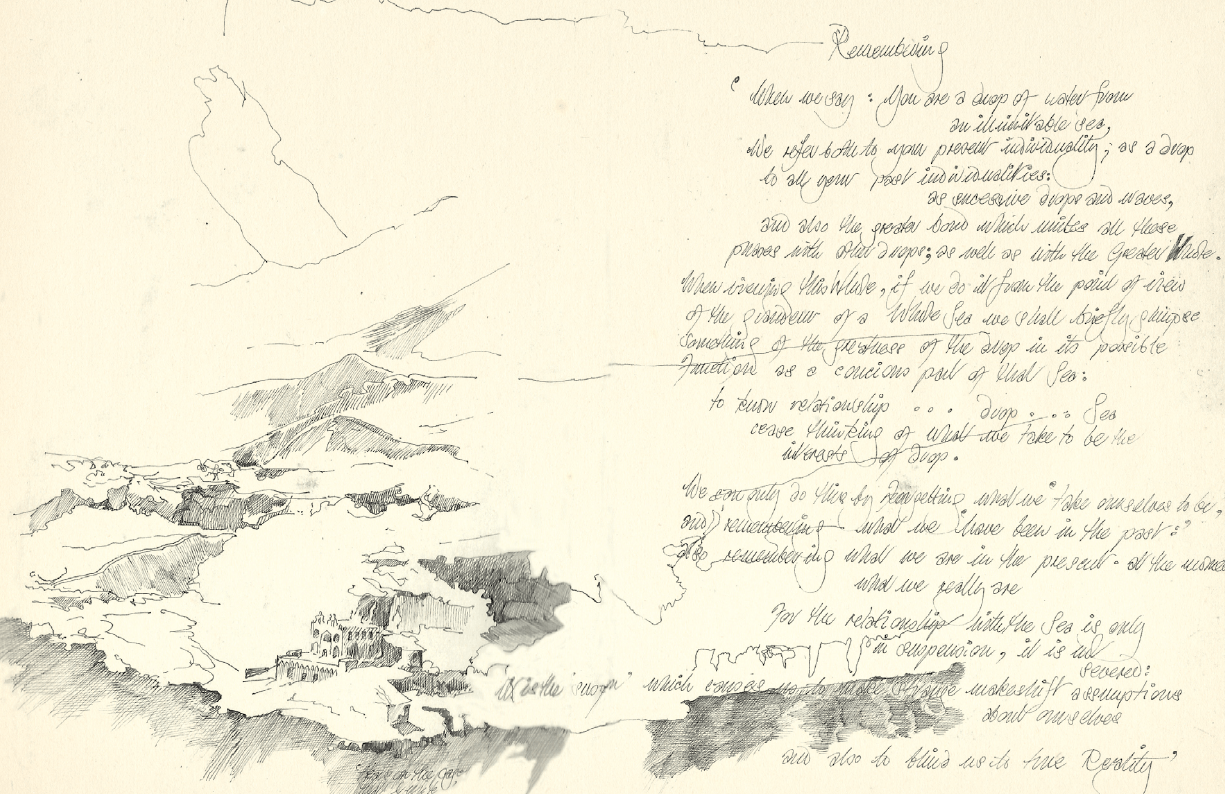 Remembering
" When we say : You are a drop of water from
an illimitable sea,
We refer both to your present individuality; as a drop
to all your past individualities:
as successive drops and waves,
and also the greater bond which unites all these
phases with other drops; as well as with the Greater Whole.
When viewing this Whole, if we do it from the point of view
of the grandeur of a Whole Sea we shall briefly glimpse
something of the greatness of the drop in its possible
function as a concious part of that Sea:
to know relationship ... drop .... Sea
cease thinking of what we take to be the
interests of drop.
We can only do this by forgetting what we "take ourselves to be,
and) remembering what we "have been in the past:"
also remembering what we are in the present - at the
what we really are
For the relationship with the Sea is only
in suspension, it is not
severed:
it is the which causes us to make strange makeshift assumptions
about ourselves
and also to blind us to true Reality"
on the